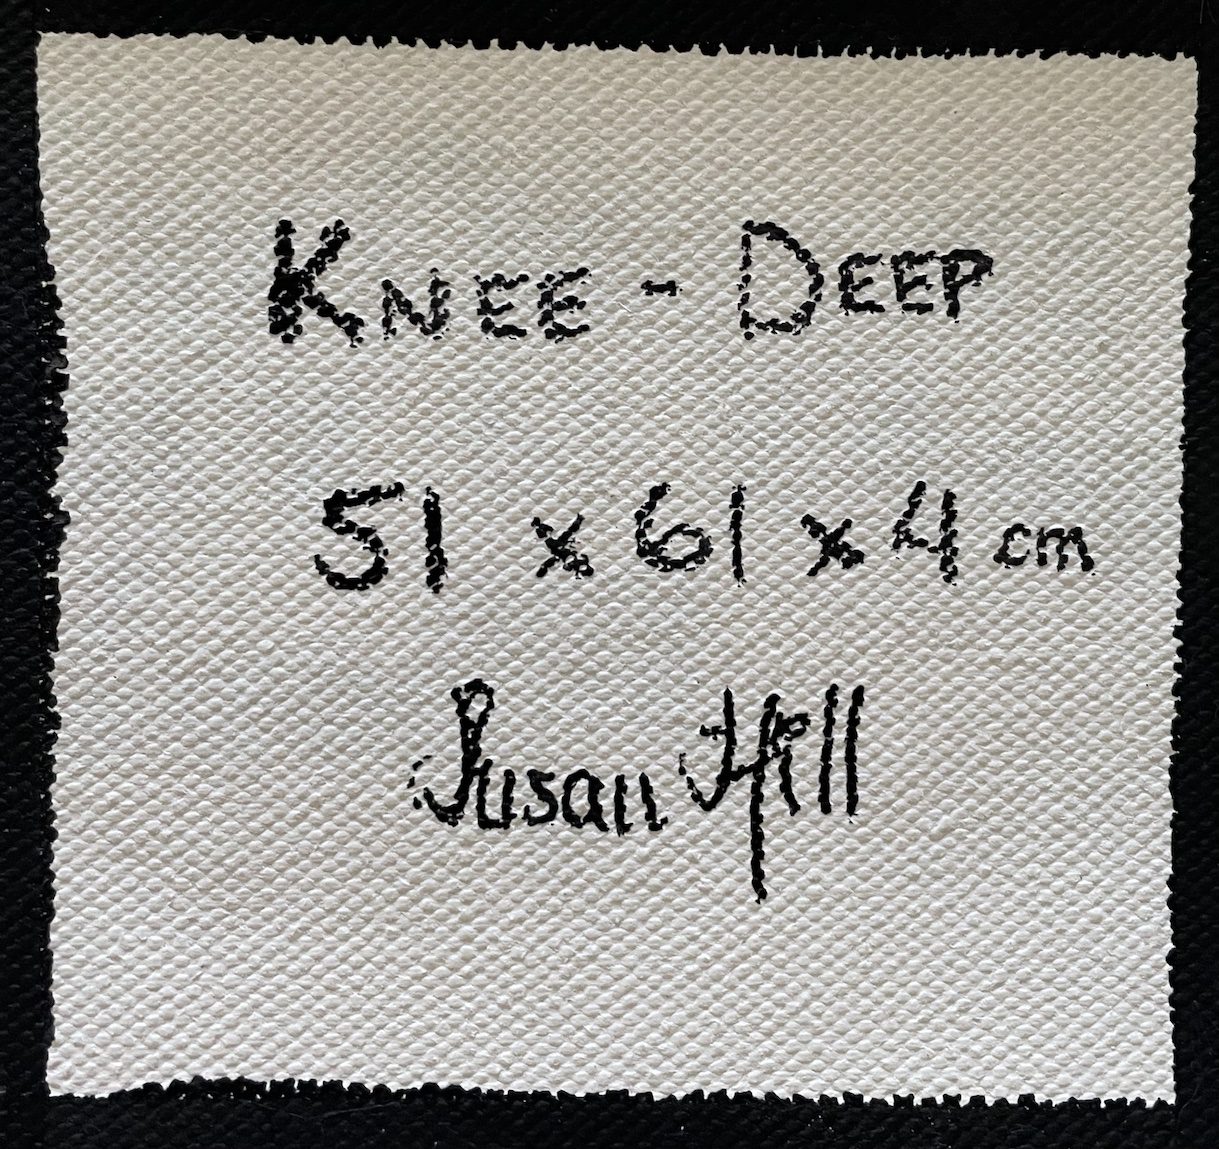 KNEE - DEEP
51 x 61 x 4 cm
Susan Hill